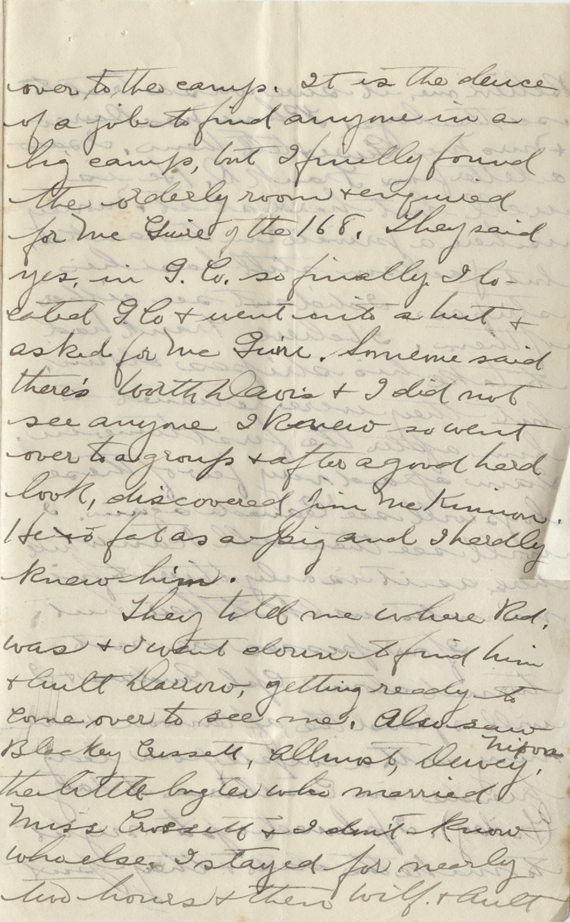 over to the camp. It is the deuce
of a job to find anyone in a
big camp, but I finally found
the orderly room & enquired
for McGuire of the 168. They said
yes, in G. Co. so finally I lo-
cated G Co & went into a hut &
asked for McGuire. Someone said
there's Worth Davis & I did not
see anyone I knew so went
over to a group & after a good hard
look, discovered Jim McKinnon.
He is fat as a pig and I hardly
knew him.
They told me where Red.
was & I went down to find him
& Ault Darrow, getting ready to
come over to see me. Also saw
Blackey Cussett, Allmost, Dewey,
the little who married
Miss Crossett & I don't know
who else. I stayed for nearly
two hours & then Wilf. & Ault